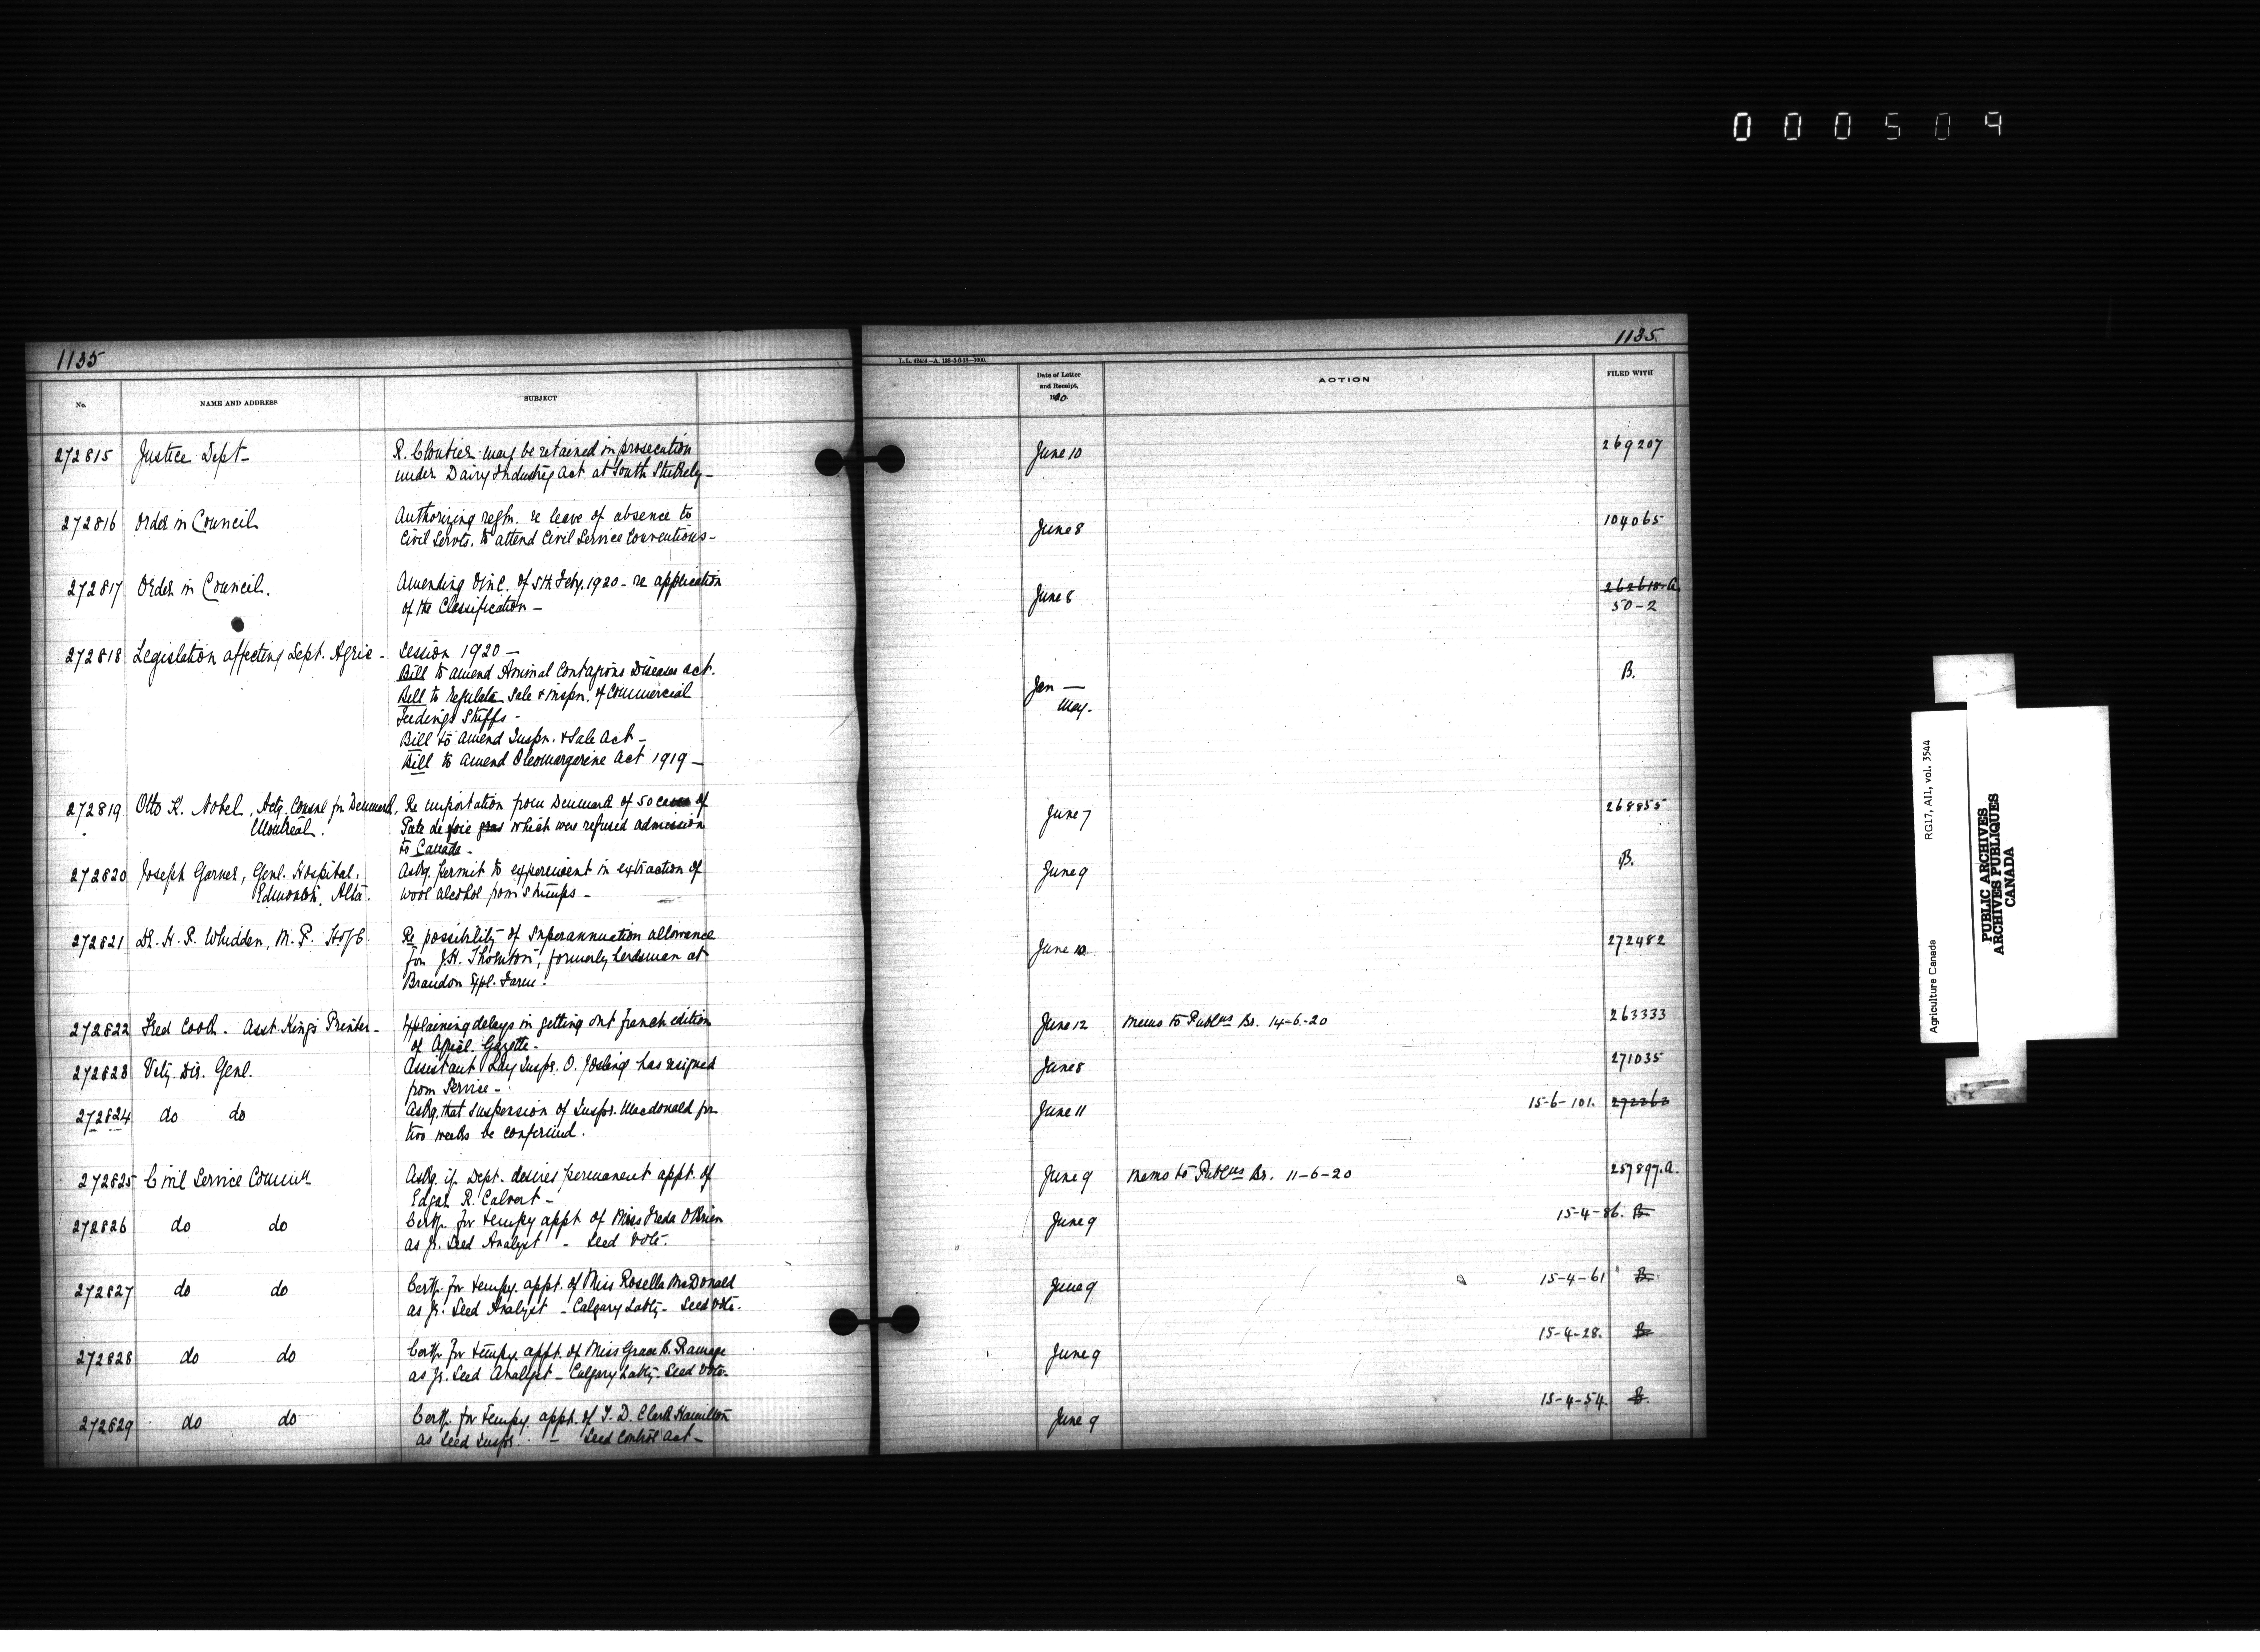 000509
1135
1135.
L.L. 62414—A. 128-5-6-18—1000.
No. NAME AND ADDRESS SUBJECT Date of Letter and Receipt, 1920. ACTION FILED WITH
272815 Justice Dept— R. Cloutier may be retained in prosecution June 10 269207
under Dairy Industry Act at South Stukely—
272816 Order in Council Authorizing regln. re leave of absence to June 8 104065
Civil Servts. to attend Civil Service Conventions—
272817 Order in Council. Amending O in C. of 5th Feby. 1920 - re application June 8 262618-A.
of the Classification — 50-2
272818 Legislation affecting Dept. Agric— Session 1920 — Jan — May. B.
Bill to amend Animal Contagious Diseases Act.
Bill to regulate Sale & inspn. of Commercial
Feedings Stuffs -
Bill to amend Inspn. & Sale Act —
Bill to amend Oleomargarine Act 1919 —
272819 Otto K. Nobel, Actg. Consul for Denmark, Re importation from Denmark of 50 cases of June 7 268855
Montreal. Pate de foie gras which was refused admission
to Canada -
272820 Joseph Garner, Genl. Hospital, Askg. permit to experiment in extraction of June 9 B.
Edmonton, Alta. wood alcohol from stumps -
272821 Dr. H. P. Whidden, M.P. H of C. Re possibility of superannuation allowance June 10 272482
for J.H. Thornton, formerly herdsman at
Brandon Expl. Farm.
272822 Fred Cook. Asst. King's Printer— Explaining delays in getting out french edition June 12 Memo to Publns Br. 14-6-20 263333
of Agricl. Gazette -
272823 Vety. Dir. Genl. Assistant Lay Inspr. O. Josling has resigned June 8 271035
from Service -
272824 do do Askg. that suspension of Inspr. Macdonald for June 11 15-6-101. 272262
two weeks be confirmed.
272825 Civil Service Commn Askg. if Dept. desires permanent appt. of June 9 Memo to Publns Br. 11-6-20 257897.A.
Edgar R. Calvert —
272826 do do Certf. for tempy appt of Miss Freda O'Brien June 9 15-4-86. B
as Jr. Seed Analyst - Seed Vote.
272827 do do Certf. for tempy. appt. of Miss Rosella McDonald June 9 15-4-61 B.
as Jr. Seed Analyst - Calgary Labty - Seed Vote.
272828 do do Certf. for tempy. appt. of Miss Grace B. Ramage June 9 15-4-28. B
as Jr. Seed Analyst - Calgary Labty - Seed Vote.
272829 do do Certf. for tempy. appt. of T. D. Clark Hamilton June 9 15-4-54. B.
as Seed Inspr. — Seed Control Act —
Agriculture Canada RG17, AI1, vol. 3544
PUBLIC ARCHIVES
ARCHIVES PUBLIQUES
CANADA